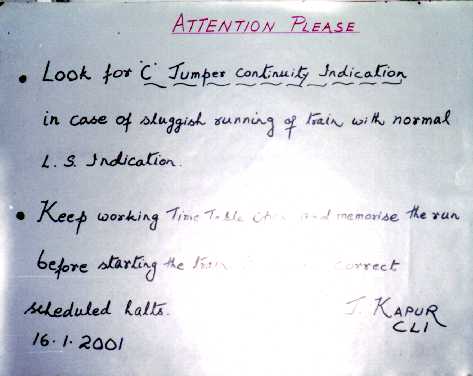 ATTENTION PLEASE
• Look for 'C' Jumper continuity Indication
in case of sluggish running of train with normal
L. S. Indication.
• Keep working Time Table and memorise the run
before starting the train correct
scheduled halts. J. KAPUR
16.1.2001 CLI